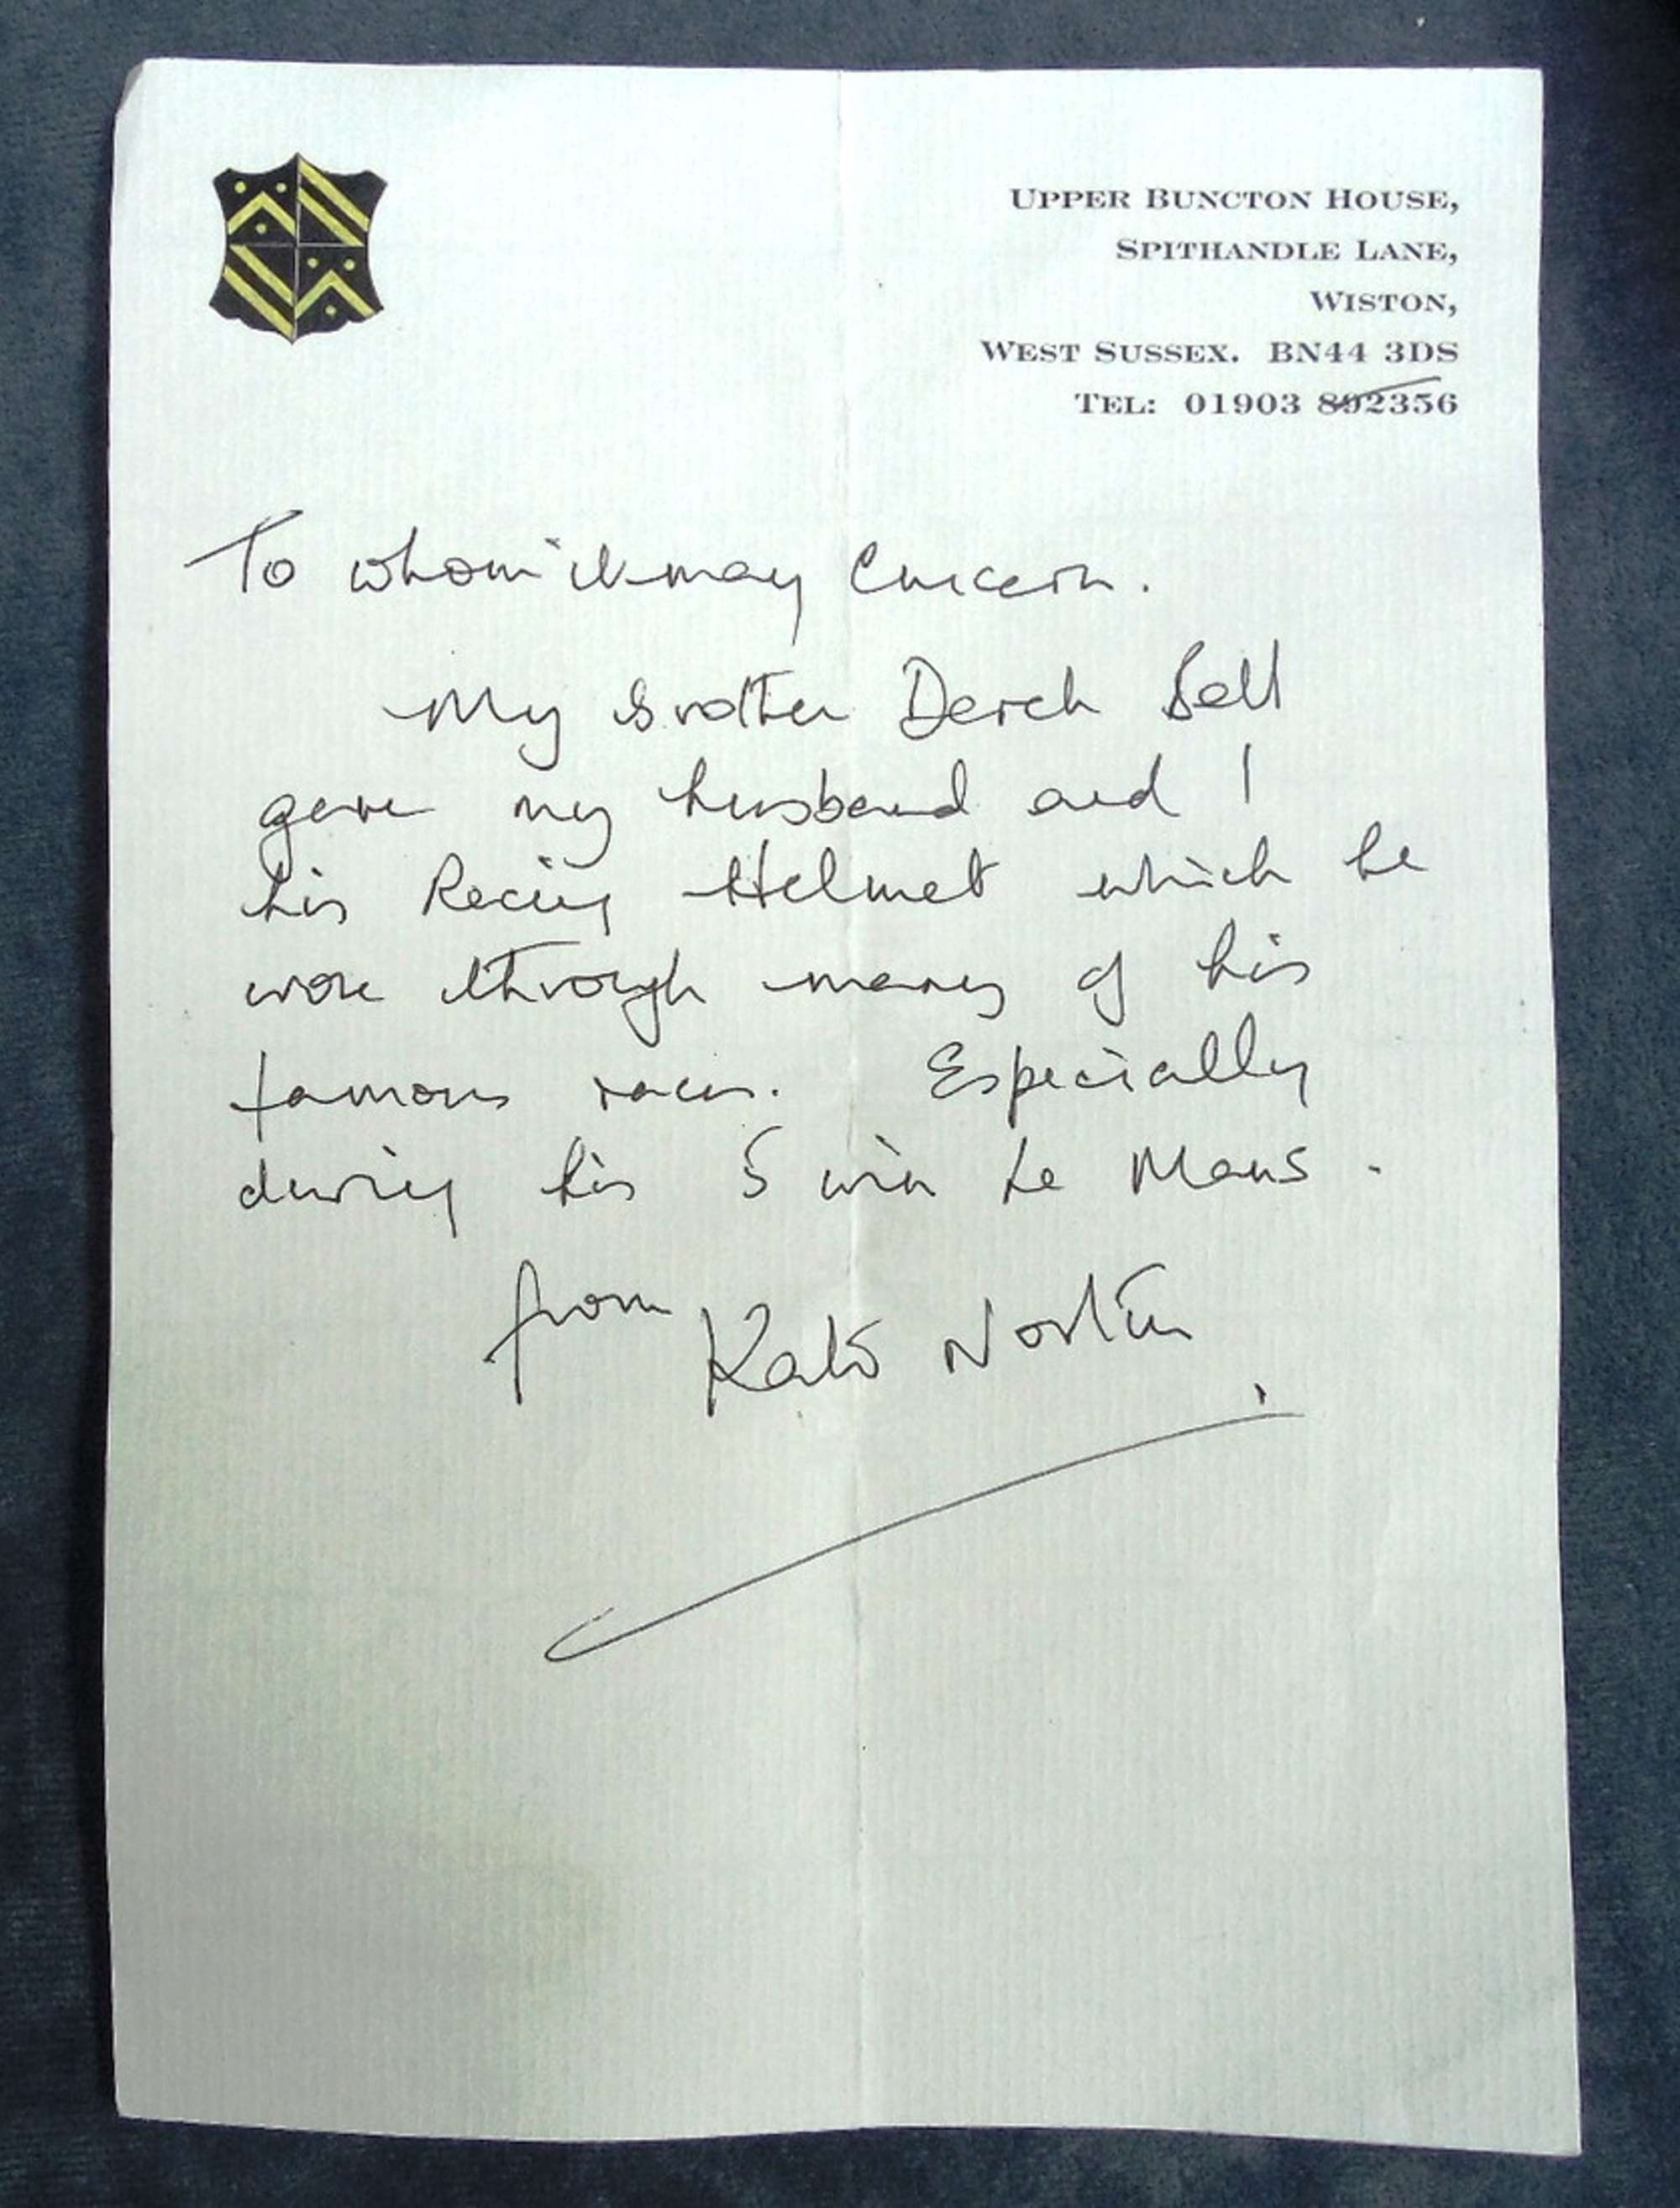 UPPER BUNCTON HOUSE,
SPITHANDLE LANE,
WISTON,
WEST SUSSEX. BN44 3DS
TEL: 01903 892356
To whom it may Concern.
My Brother Derek Bell
gave my husband and I
his Racing Helmet which he
wore through many of his
famous races. Especially
during his 5 win Le Mans.
from
Norton